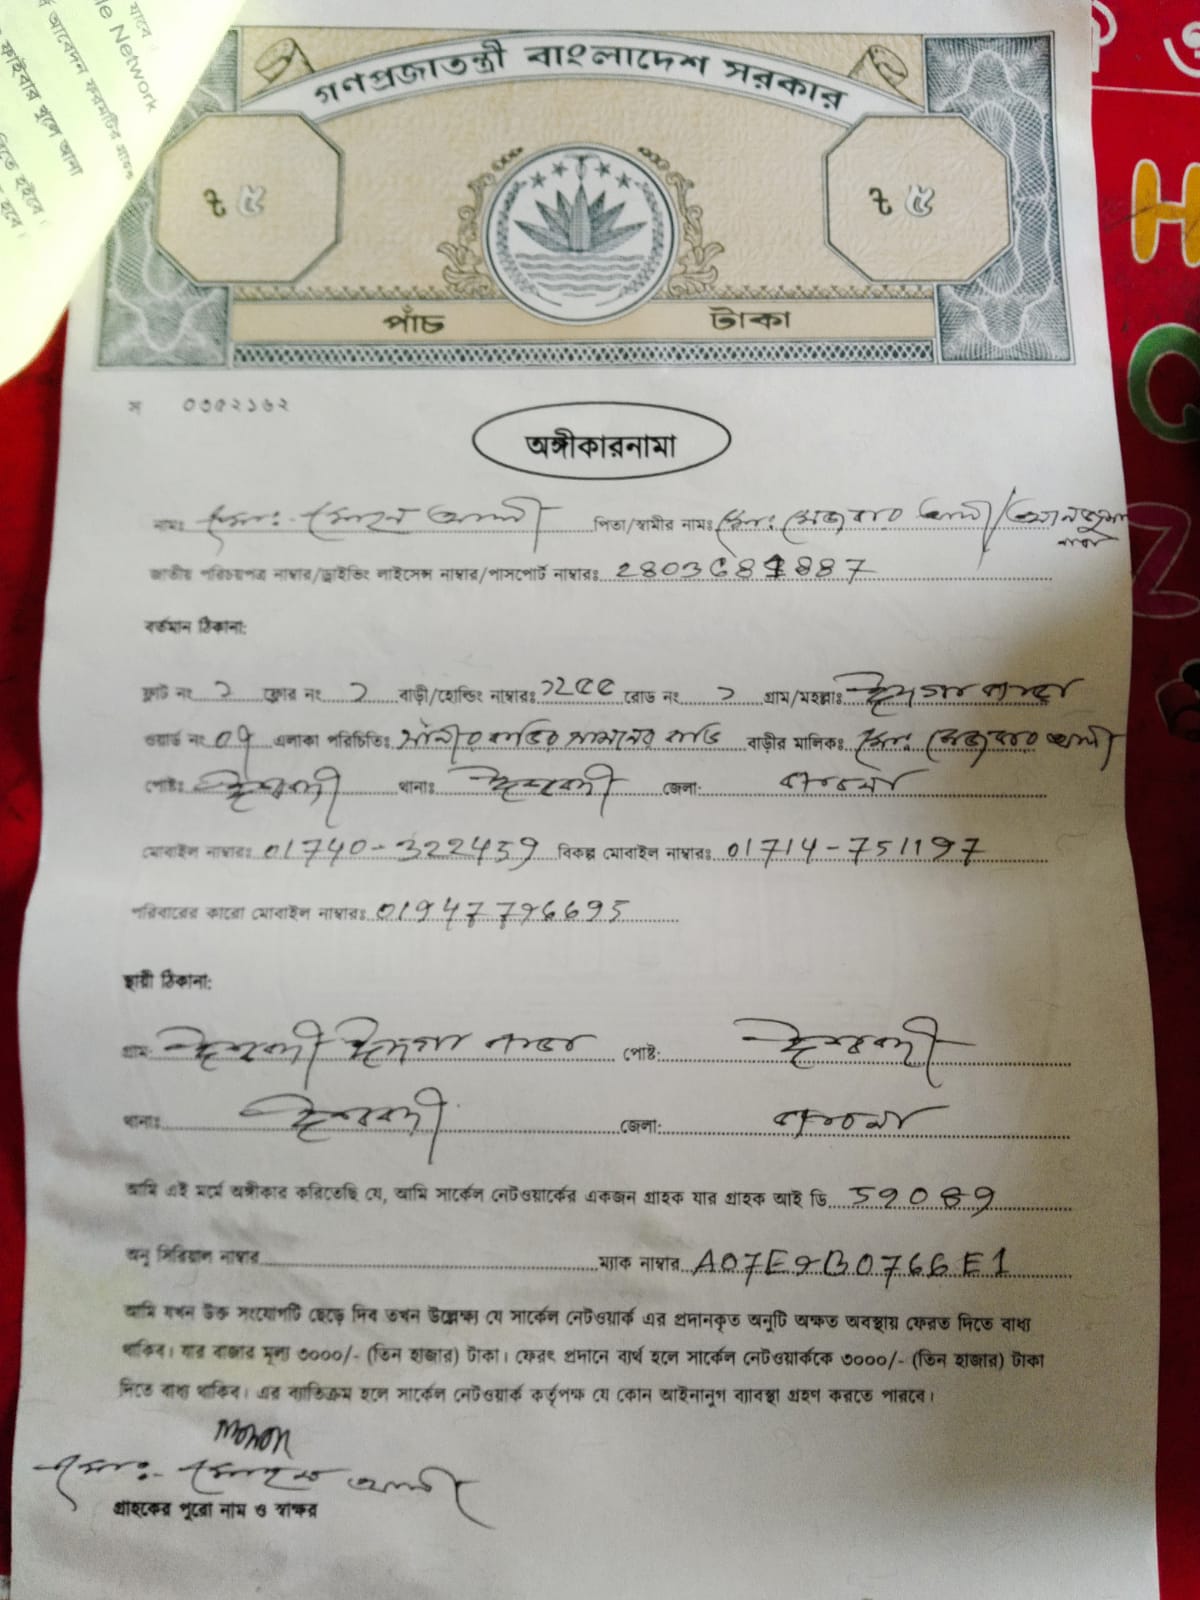 যাবে।
le Network
আবেদন ফরমটির
ফাইবার খুলে আনা
দিতে হইবে।
হবে।
গণপ্রজাতন্ত্রী বাংলাদেশ সরকার
৳ ৫ ৳ ৫
পাঁচ টাকা
স ০৩৫২১৬২
অঙ্গীকারনামা
নামঃ মোঃ মোহন আলী পিতা/স্বামীর নামঃ মোঃ মেজবার আলী/
জাতীয় পরিচয়পত্র নাম্বার/ড্রাইভিং লাইসেন্স নাম্বার/পাসপোর্ট নাম্বারঃ
বর্তমান ঠিকানা:
ফ্লাট নং ১ ফ্লোর নং ১ বাড়ী/হোল্ডিং নাম্বারঃ ১২৫৫ রোড নং ১ গ্রাম/মহল্লাঃ ঈদগা পাড়া
ওয়ার্ড নং 07 এলাকা পরিচিতিঃ বাড়ির সামনের বাড়ি বাড়ীর মালিক: মোঃ মেজবার আলী
পোষ্ট: ঈশ্বরদী থানাঃ ঈশ্বরদী জেলা: পাবনা
মোবাইল নাম্বারঃ 01740-322459 বিকল্প মোবাইল নাম্বারঃ 01714-751197
পরিবারের কারো মোবাইল নাম্বারঃ 01947796695
স্থায়ী ঠিকানা:
গ্রাম: ঈশ্বরদী ঈদগা পাড়া পোষ্ট: ঈশ্বরদী
থানাঃ ঈশ্বরদী জেলা: পাবনা
আমি এই মর্মে অঙ্গীকার করিতেছি যে, আমি সার্কেল নেটওয়ার্কের একজন গ্রাহক যার গ্রাহক আই ডি 59089
অনু সিরিয়াল নাম্বার ম্যাক নাম্বার A07E9B0766E1
আমি যখন উক্ত সংযোগটি ছেড়ে দিব তখন উল্লেক্ষ্য যে সার্কেল নেটওয়ার্ক এর প্রদানকৃত অনুটি অক্ষত অবস্থায় ফেরত দিতে বাধ্য
থাকিব। যার বাজার মূল্য ৩০০০/- (তিন হাজার) টাকা। ফেরৎ প্রদানে ব্যর্থ হলে সার্কেল নেটওয়ার্ককে ৩০০০/- (তিন হাজার) টাকা
দিতে বাধ্য থাকিব। এর ব্যতিক্রম হলে সার্কেল নেটওয়ার্ক কর্তৃপক্ষ যে কোন আইনানুগ ব্যাবস্থা গ্রহণ করতে পারবে।
mohon
মোঃ মোহন আলী
গ্রাহকের পুরো নাম ও স্বাক্ষর